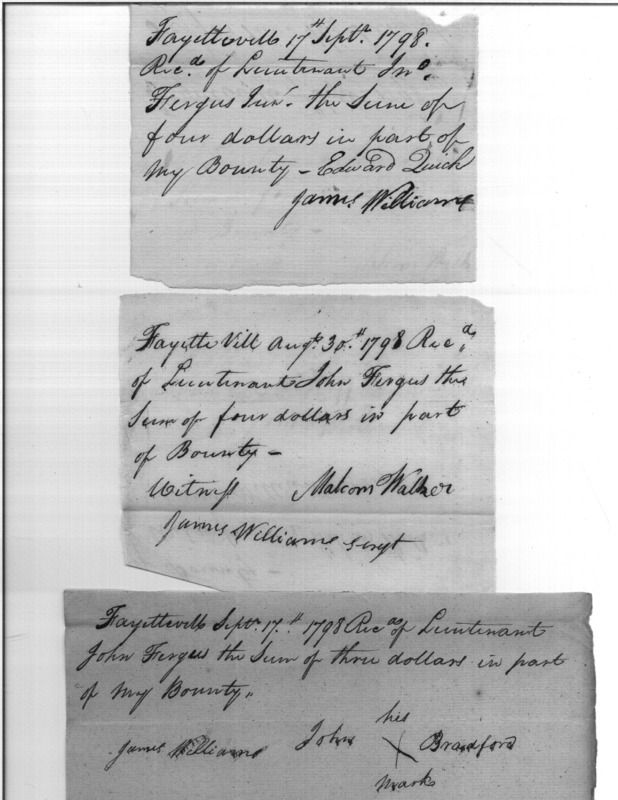 Fayettevill 17th Septr. 1798.
Recd. of Lieutenant Jno.
Fergus Junr. the Sum of
four dollars in part of
my Bounty - Edward Quick
James Williams
Fayette Vill Augt. 30th 1798 Recd.
of Lieutenant John Fergus the
Sum of four dollars in part
of Bounty -
Witness Malcom Walker
James Williams Sergt
Fayettevill Septr. 17th 1798 Recd of Lieutenant
John Fergus the Sum of three dollars in part
of my Bounty.
his
James Williams John X Bradford
mark